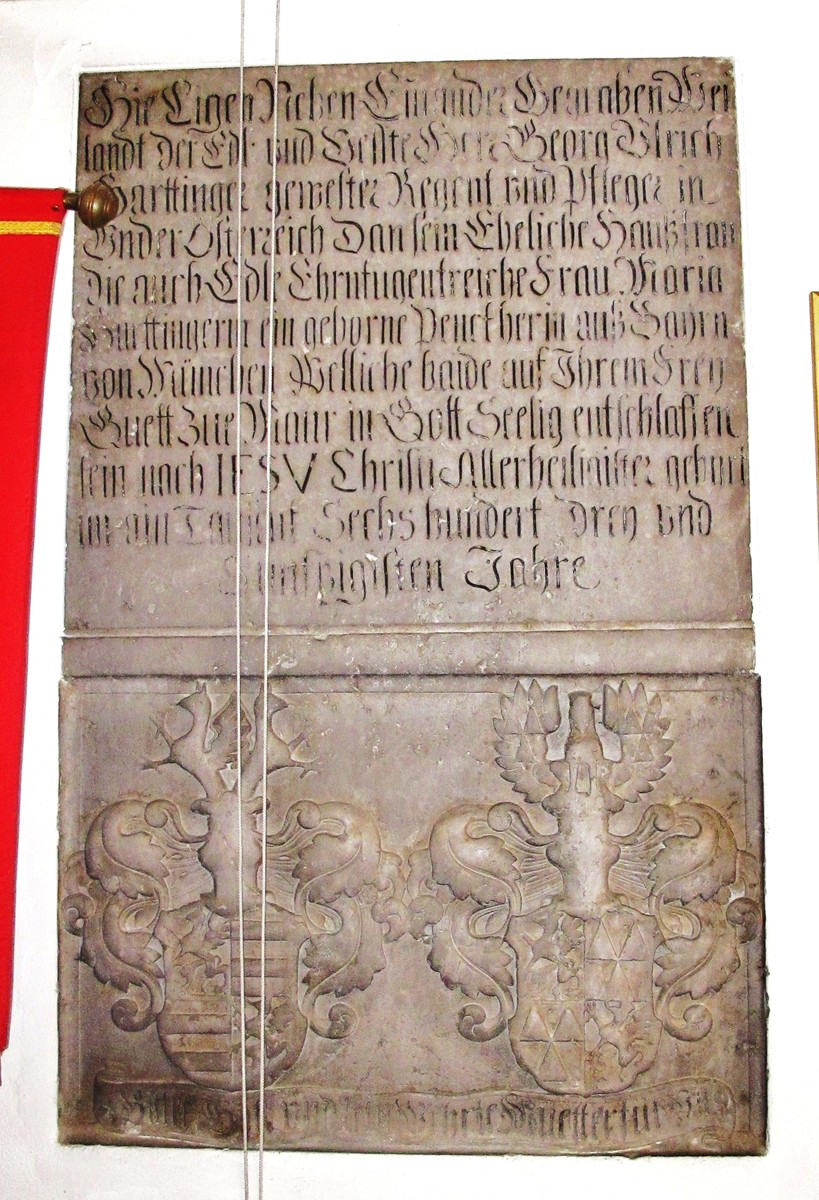 Hie Ligen Neben Einander Begraben Wei
landt der Edl und Veste Herr Georg Vlrich
Harttinger gewester Regent vnd Pfleger in
Vnder Osterreich Dan sein Eheliche Haußfrau
die auch Edle Ehrntugentreiche Frau Maria
Harttingerin ein geborne Penckherin auß Bayrn
von München Welliche baide auf Ihrem Frey
Guett zue Maur in Gott Seelig entschlaffen
sein nach IESV Christi Allerheiligister geburt
im ain Taußent Sechs hundert drey vnd
Funfzigisten Jahre